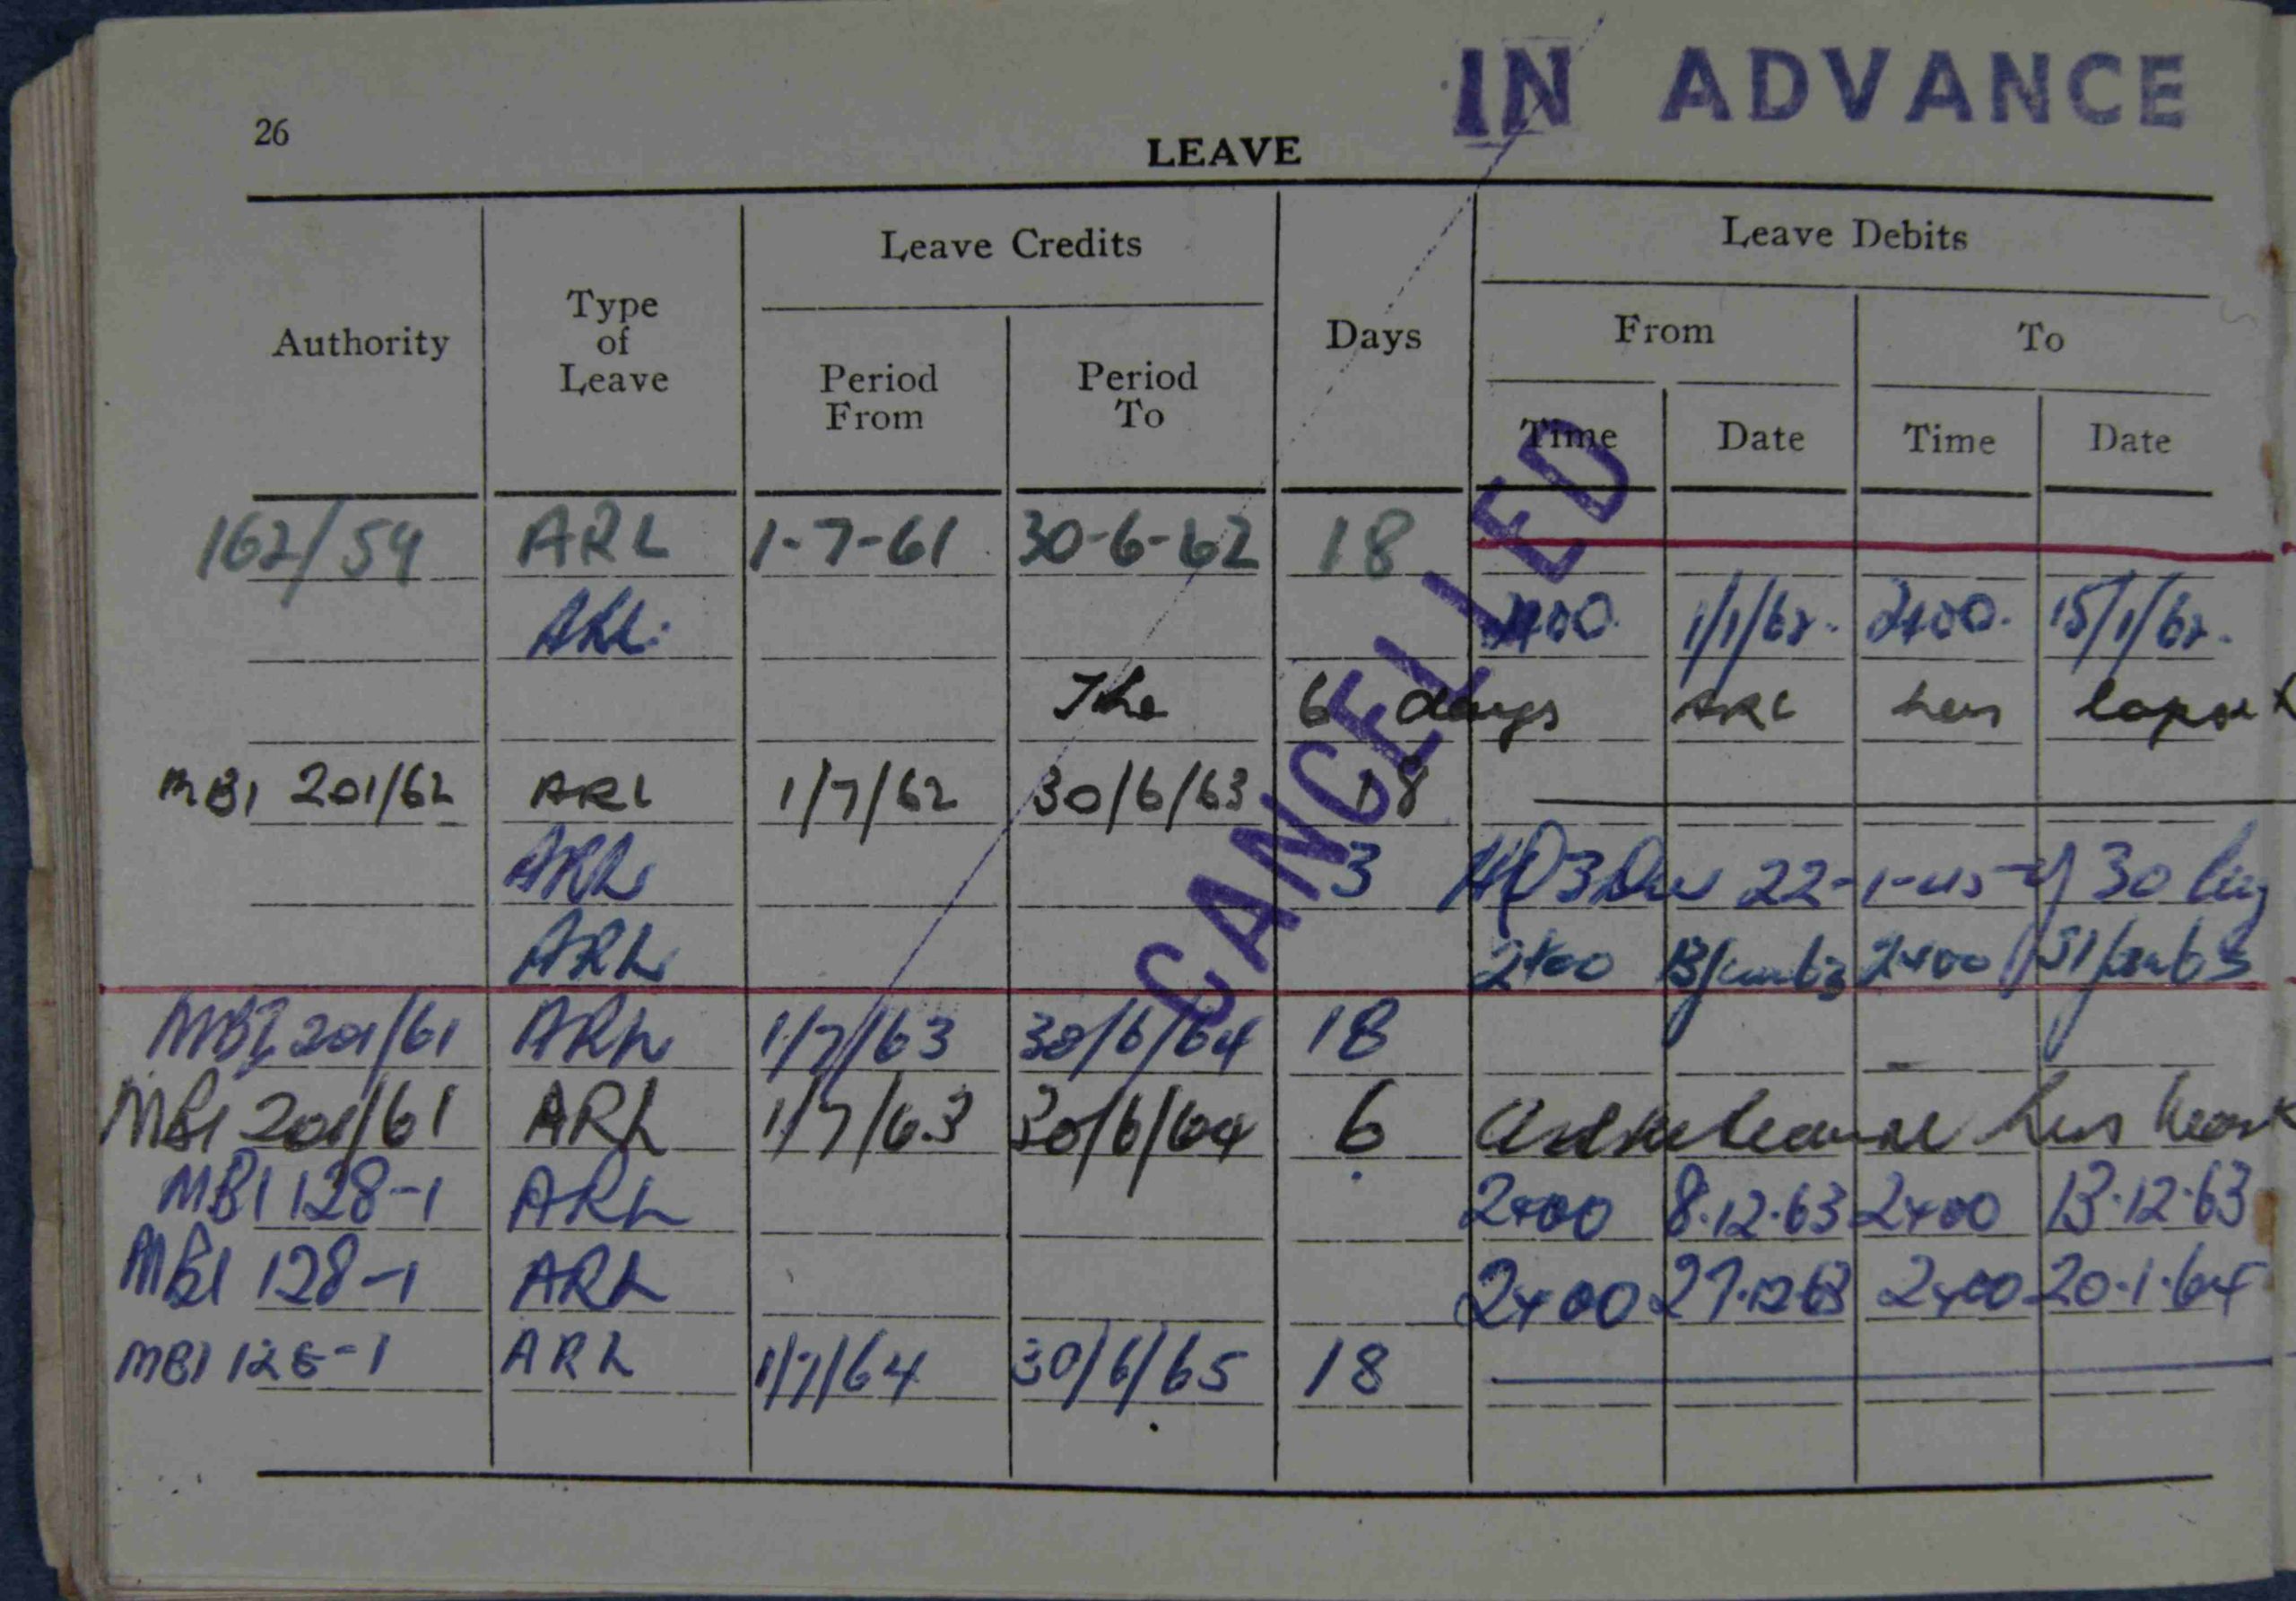 IN ADVANCE
26
LEAVE
Authority Type of Leave Leave Credits Days Leave Debits
Period From Period To From To
Time Date Time Date
162/59 ARL 1-7-61 30-6-62 18
ARL. 2400. 1/1/62. 2400. 15/1/62.
The 6 days ARL has
MBI 201/62 ARL 1/7/62 30/6/63 18
ARL 3 22-1-45 30
ARL 2400 2400
MBI 201/61 ARL 1/7/63 30/6/64 18
MBI 201/61 ARL 1/7/63 30/6/64 6 leave has
MBI 128-1 ARL 2400 8.12.63 2400 13.12.63
MBI 128-1 ARL 2400 27.12.63 2400 20.1.64
MBI 128-1 ARL 1/7/64 30/6/65 18
CANCELLED